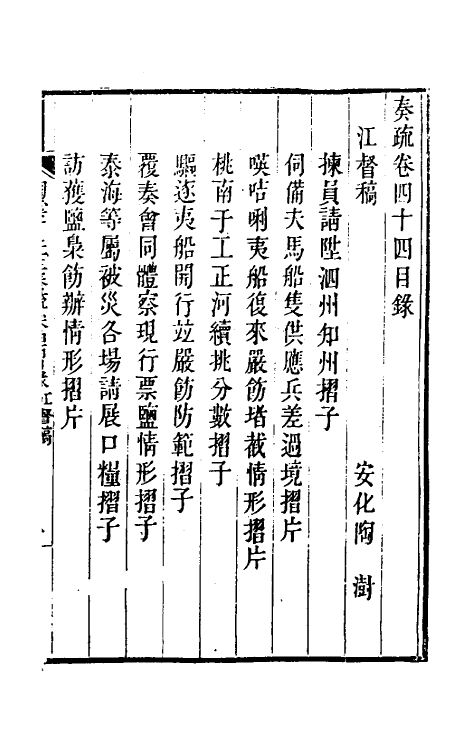 奏疏卷四十四目錄
江督稿
安化陶 澍
揀員請陞泗州知州摺子
伺備夫馬船隻供應兵差過境摺片
嘆咭唎夷船復來嚴飭堵截情形摺片
桃南于工正河續挑分數摺子
驅逐夷船開行竝嚴飭防範摺子
覆奏會同體察現行票鹽情形摺子
泰海等屬被災各場請展口糧摺子
訪獲鹽梟飭辦情形摺片
江督稿